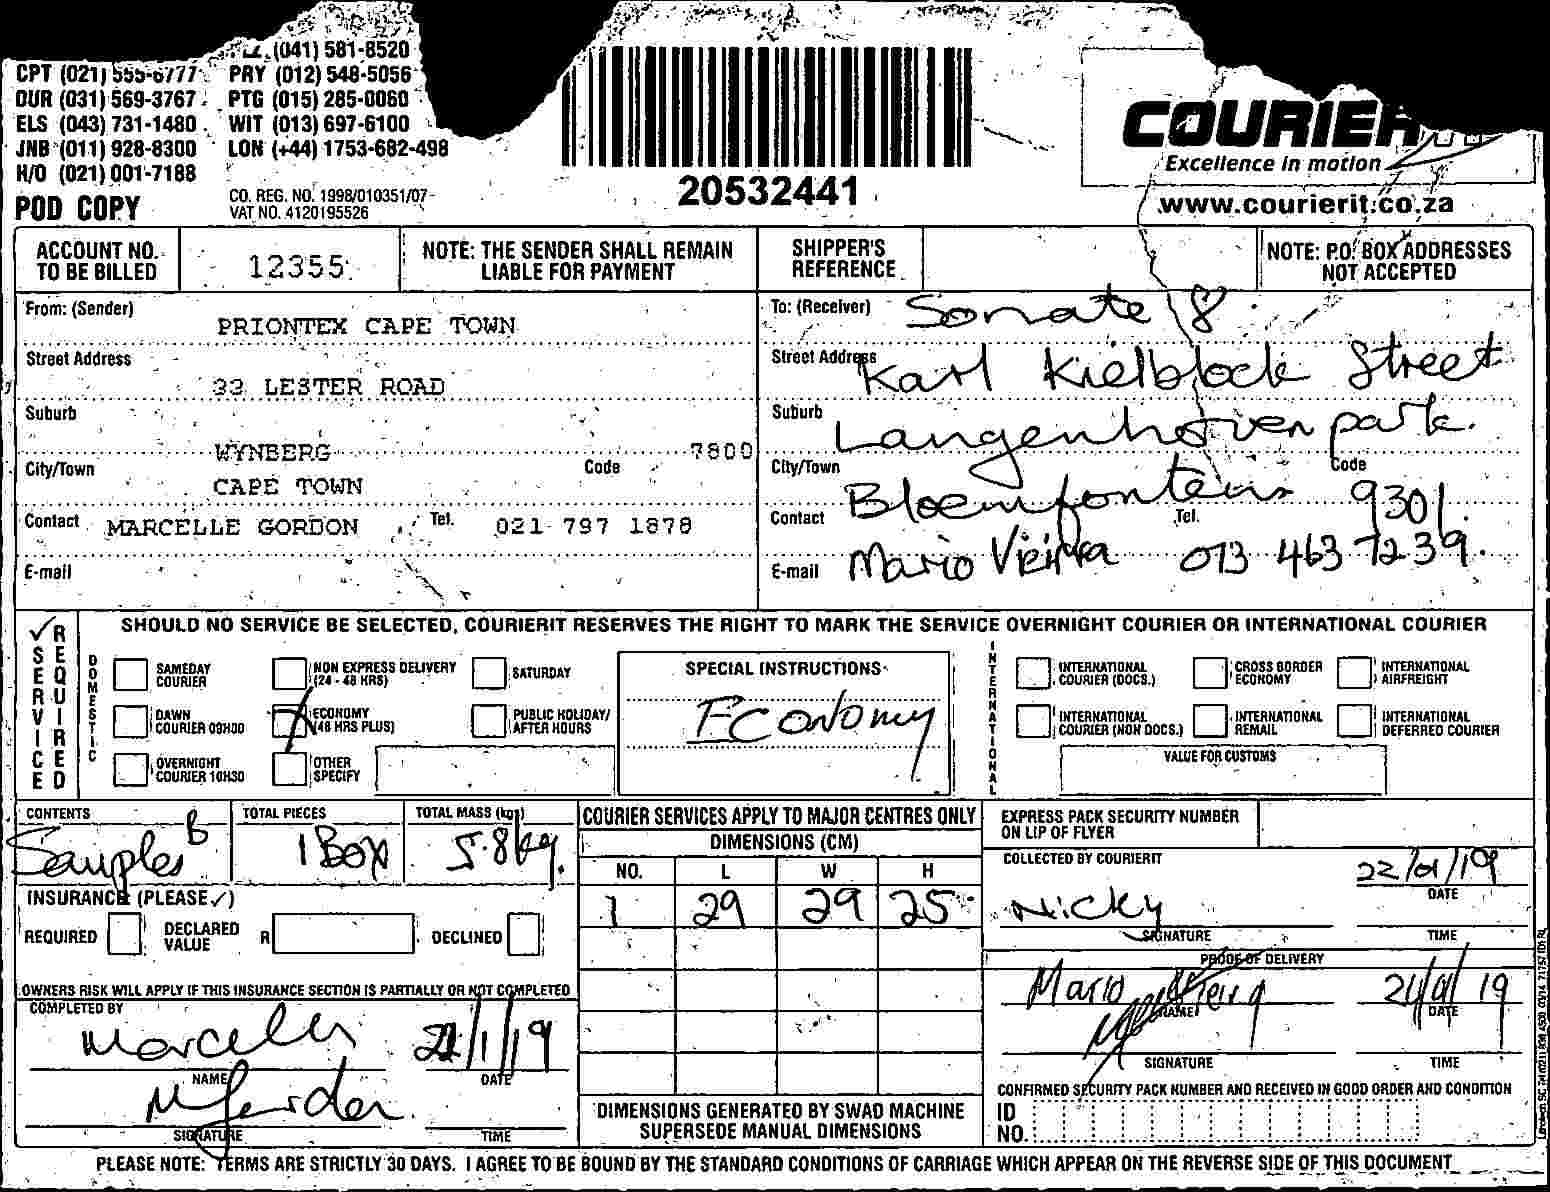 (041) 581-8520
CPT (021) 555-6777 PRY (012) 548-5056
DUR (031) 569-3767 PTG (015) 285-0060
ELS (043) 731-1480 WIT (013) 697-6100
JNB (011) 928-8300 LON (+44) 1753-682-498
H/O (021) 001-7188
POD COPY
CO. REG. NO. 1998/010351/07
VAT NO. 4120195526
20532441
COURIER
Excellence in motion
www.courierit.co.za
ACCOUNT NO. TO BE BILLED 12355
NOTE: THE SENDER SHALL REMAIN LIABLE FOR PAYMENT
SHIPPER'S REFERENCE
NOTE: P.O. BOX ADDRESSES NOT ACCEPTED
From: (Sender) PRIONTEX CAPE TOWN
Street Address 33 LESTER ROAD
Suburb WYNBERG
City/Town CAPE TOWN Code 7800
Contact MARCELLE GORDON Tel. 021 797 1878
E-mail
To: (Receiver) Sonate 8
Street Address Karl Kielblock Street
Suburb Langenhoven park.
City/Town Bloemfontein Code 9301
Contact Mario Vieira Tel. 073 463 7239.
E-mail
SERVICE REQUIRED
SHOULD NO SERVICE BE SELECTED, COURIERIT RESERVES THE RIGHT TO MARK THE SERVICE OVERNIGHT COURIER OR INTERNATIONAL COURIER
DOMESTIC
SAMEDAY COURIER
NON EXPRESS DELIVERY (24 - 48 HRS)
SATURDAY
DAWN COURIER 09H00
ECONOMY (48 HRS PLUS)
PUBLIC HOLIDAY/ AFTER HOURS
OVERNIGHT COURIER 10H30
OTHER SPECIFY
SPECIAL INSTRUCTIONS
Economy
INTERNATIONAL
INTERNATIONAL COURIER (DOCS.)
CROSS BORDER ECONOMY
INTERNATIONAL AIRFREIGHT
INTERNATIONAL COURIER (NON DOCS.)
INTERNATIONAL REMAIL
INTERNATIONAL DEFERRED COURIER
VALUE FOR CUSTOMS
CONTENTS Samples B
TOTAL PIECES 1 Box
TOTAL MASS (kgs) 5.8kg.
INSURANCE (PLEASE ✓)
REQUIRED
DECLARED VALUE R
DECLINED
OWNERS RISK WILL APPLY IF THIS INSURANCE SECTION IS PARTIALLY OR NOT COMPLETED
COMPLETED BY
Marcelle 22/1/19
NAME DATE
SIGNATURE TIME
COURIER SERVICES APPLY TO MAJOR CENTRES ONLY
DIMENSIONS (CM)
NO. L W H
1 29 29 25
DIMENSIONS GENERATED BY SWAD MACHINE SUPERSEDE MANUAL DIMENSIONS
EXPRESS PACK SECURITY NUMBER ON LIP OF FLYER
COLLECTED BY COURIERIT
22/01/19
DATE
Nicky
SIGNATURE TIME
PROOF OF DELIVERY
Mario Vieira 24/01/19
NAME DATE
SIGNATURE TIME
CONFIRMED SECURITY PACK NUMBER AND RECEIVED IN GOOD ORDER AND CONDITION
ID NO.
PLEASE NOTE: TERMS ARE STRICTLY 30 DAYS. I AGREE TO BE BOUND BY THE STANDARD CONDITIONS OF CARRIAGE WHICH APPEAR ON THE REVERSE SIDE OF THIS DOCUMENT